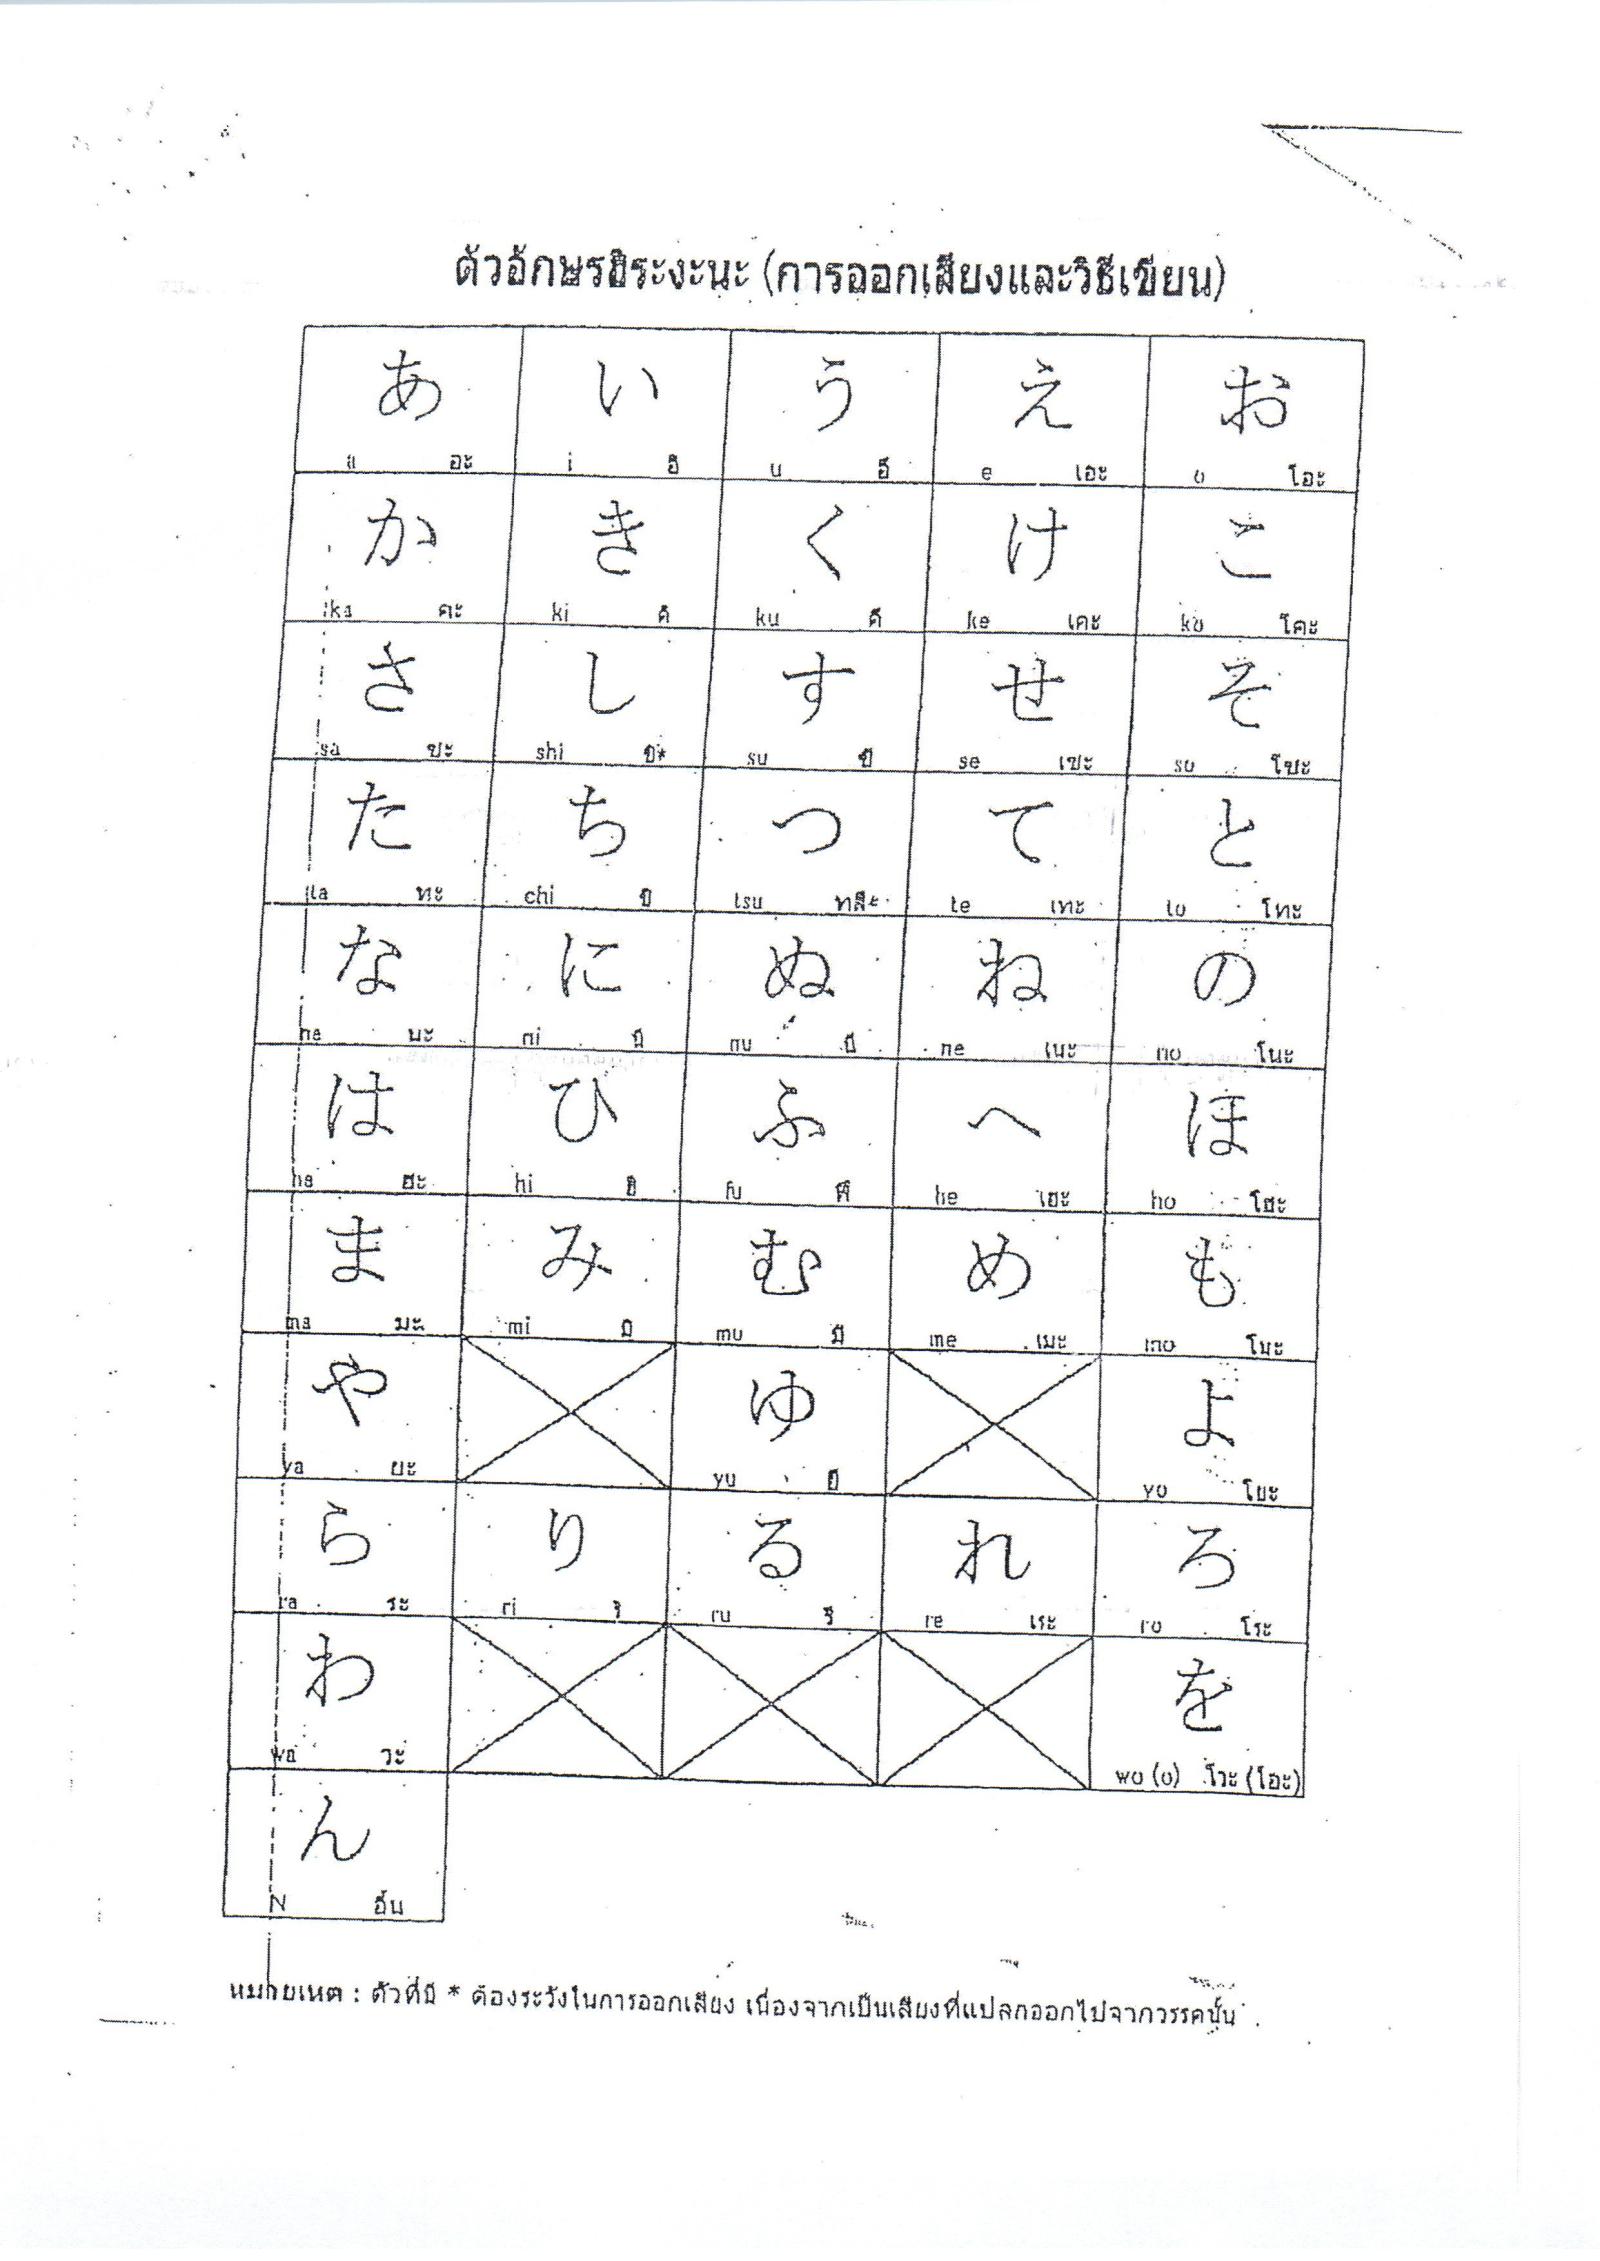 ตัวอักษรฮิระงะนะ (การออกเสียงและวิธีเขียน)
あ い う え お
a อะ i อิ u อึ e เอะ o โอะ
か き く け こ
ka คะ ki คิ ku คึ ke เคะ ko โคะ
さ し す せ そ
sa ซะ shi ชิ* su ซึ se เซะ so โซะ
た ち つ て と
ta ทะ chi ชิ tsu ทสึ* te เทะ to โทะ
な に ぬ ね の
na นะ ni นิ nu นึ ne เนะ no โนะ
は ひ ふ へ ほ
ha ฮะ hi ฮิ fu ฟึ he เฮะ ho โฮะ
ま み む め も
ma มะ mi มิ mu มึ me เมะ mo โมะ
や ゆ よ
ya ยะ yu ยึ yo โยะ
ら り る れ ろ
ra ระ ri ริ ru รึ re เระ ro โระ
わ を
wa วะ wo (o) โวะ (โอะ)
ん
N อึ้น
หมายเหตุ : ตัวที่มี * ต้องระวังในการออกเสียง เนื่องจากเป็นเสียงที่แปลกออกไปจากวรรคนั้น